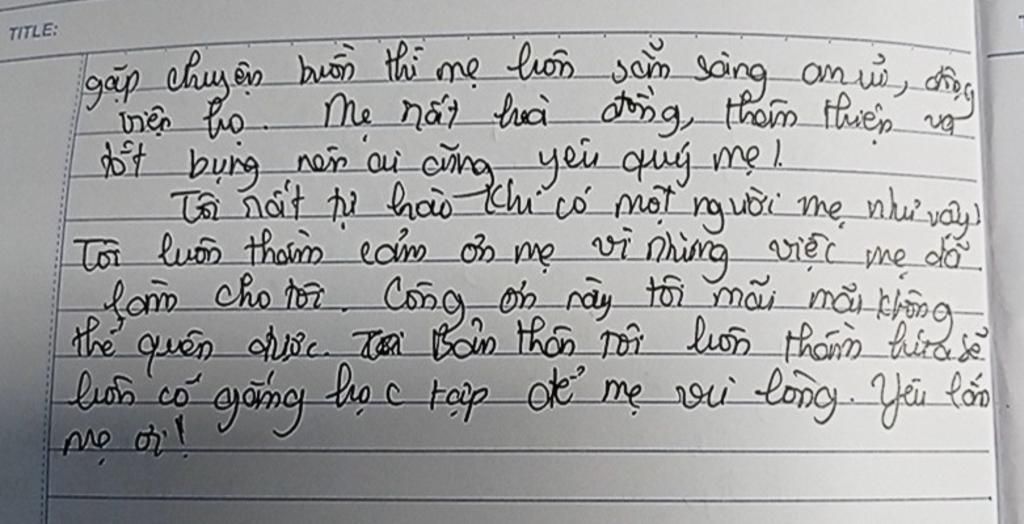 TITLE:
gặp chuyện buồn thì mẹ luôn sẵn sàng an ủi, động
viện họ. Mẹ rất hoà đồng, thân thiện và
tốt bụng nên ai cũng yêu quý mẹ!
Tôi rất tự hào khi có một người mẹ như vậy!
Tôi luôn thầm cảm ơn mẹ vì những việc mẹ đã
làm cho tôi. Công ơn này tôi mãi mãi không
thể quên được. Bản thân tôi luôn thầm hứa sẽ
luôn cố gắng học tập để mẹ vui lòng. Yêu lắm
mẹ ơi!